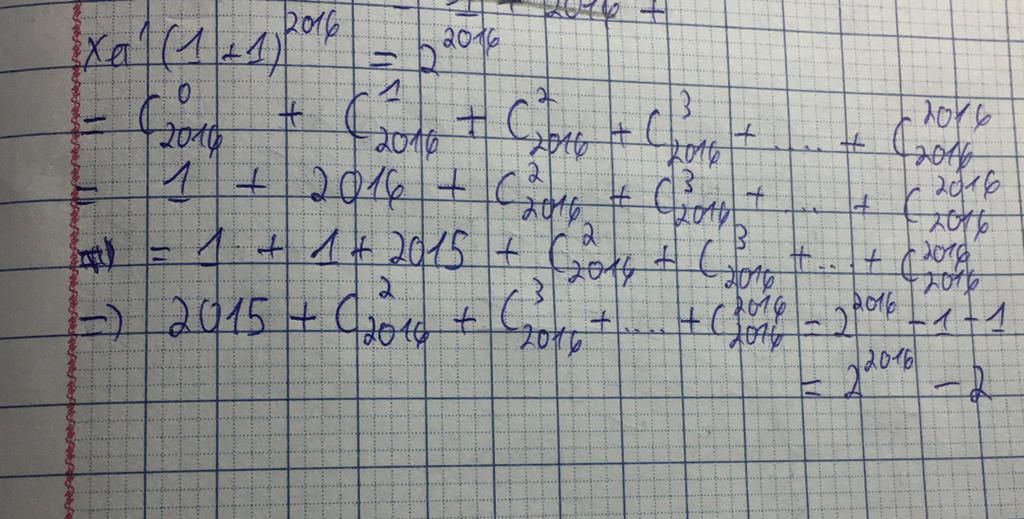 2016 +
Xét (1+1)^2016 = 2^2016
= C^0_2016 + C^1_2016 + C^2_2016 + C^3_2016 + ..... + C^2016_2016
= 1 + 2016 + C^2_2016 + C^3_2016 + ... + C^2016_2016
= 1 + 1 + 2015 + C^2_2016 + C^3_2016 + ... + C^2016_2016
=> 2015 + C^2_2016 + C^3_2016 + ..... + C^2016_2016 = 2^2016 - 1 - 1
= 2^2016 - 2